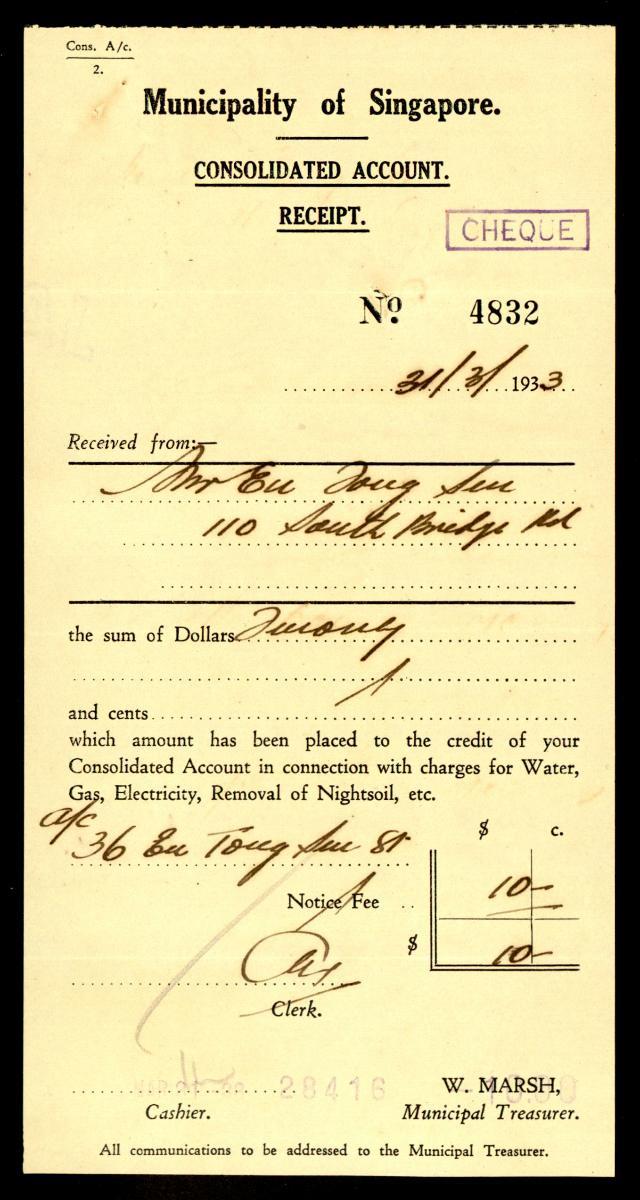 Cons. A/c.
2.
Municipality of Singapore.
CONSOLIDATED ACCOUNT.
RECEIPT.
CHEQUE
No. 4832
31/3/1933
Received from:—
Mr Eu Tong Sen
110 South Bridge Rd
the sum of Dollars
and cents
which amount has been placed to the credit of your
Consolidated Account in connection with charges for Water,
Gas, Electricity, Removal of Nightsoil, etc.
a/c
36 Eu Tong Sen St
$ c.
10-
Notice Fee ..
$ 10-
Clerk.
28416
W. MARSH,
Cashier. Municipal Treasurer.
All communications to be addressed to the Municipal Treasurer.